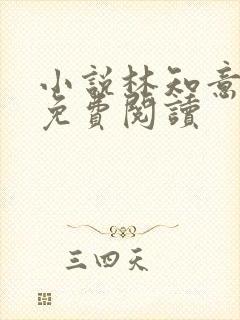 小說林知意
免費閱讀
三四天